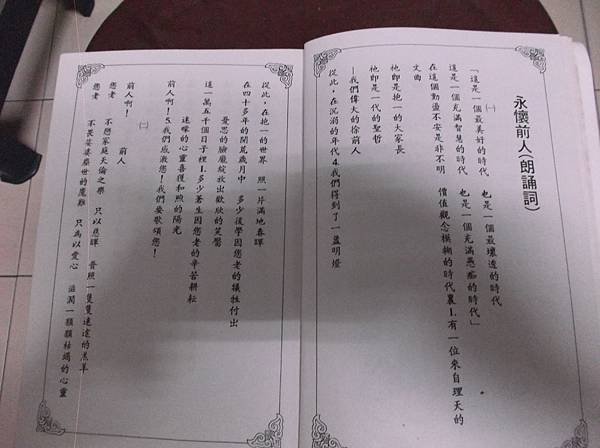 永懷前人(朗誦詞)
㈠
「這是一個最美好的時代　也是一個最壞透的時代
這是一個充滿智慧的時代　也是一個充滿愚痴的時代」
在這個動盪不安是非不明　價值觀念模糊的時代裏1.有一位來自理天的
文曲
他即是抱一的大家長
他即是一代的聖哲
—我們偉大的徐前人
從此，在沉溺的年代4.我們得到了一盞明燈
從此，在抱一的世界　照一片滿地春暉
在四十多年的開荒歲月中　多少後學因您老的犧牲付出
憂思的臉龐綻放出歡欣的笑靨
這一萬五千個日子裡1.多少蒼生因您老的辛苦耕耘
迷矇的心靈喜獲和煦的陽光
前人啊！5.我們感激您！我們要歌頌您！
㈡
前人啊！　前人
您老　不戀家庭天倫之樂　只以慈暉　普照一隻隻迷途的羔羊
您老　不畏娑婆塵世的魔難　只為以愛心　滋潤一顆顆枯竭的心靈